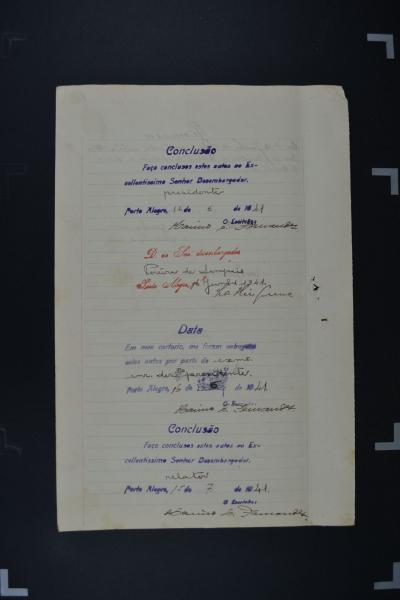 Conclusão
Faço conclusos estes autos ao Ex-
cellentissimo Senhor Desembargador.
presidente
Porto Alegre, 16 de 6 de 1941
O Escrivão:
D. ao Snr. desembargador
Porto Alegre, 16 Junho 1941.
Data
Em meu cartorio, me foram entregues
estes autos por parte do exmo.
snr. des. presidente
Porto Alegre, 16 de 6 de 1941
O Escrivão:
Conclusão
Faço conclusos estes autos ao Ex-
cellentissimo Senhor Desembargador.
relator
Porto Alegre, 15 de 7 de 1941.
O Escrivão: